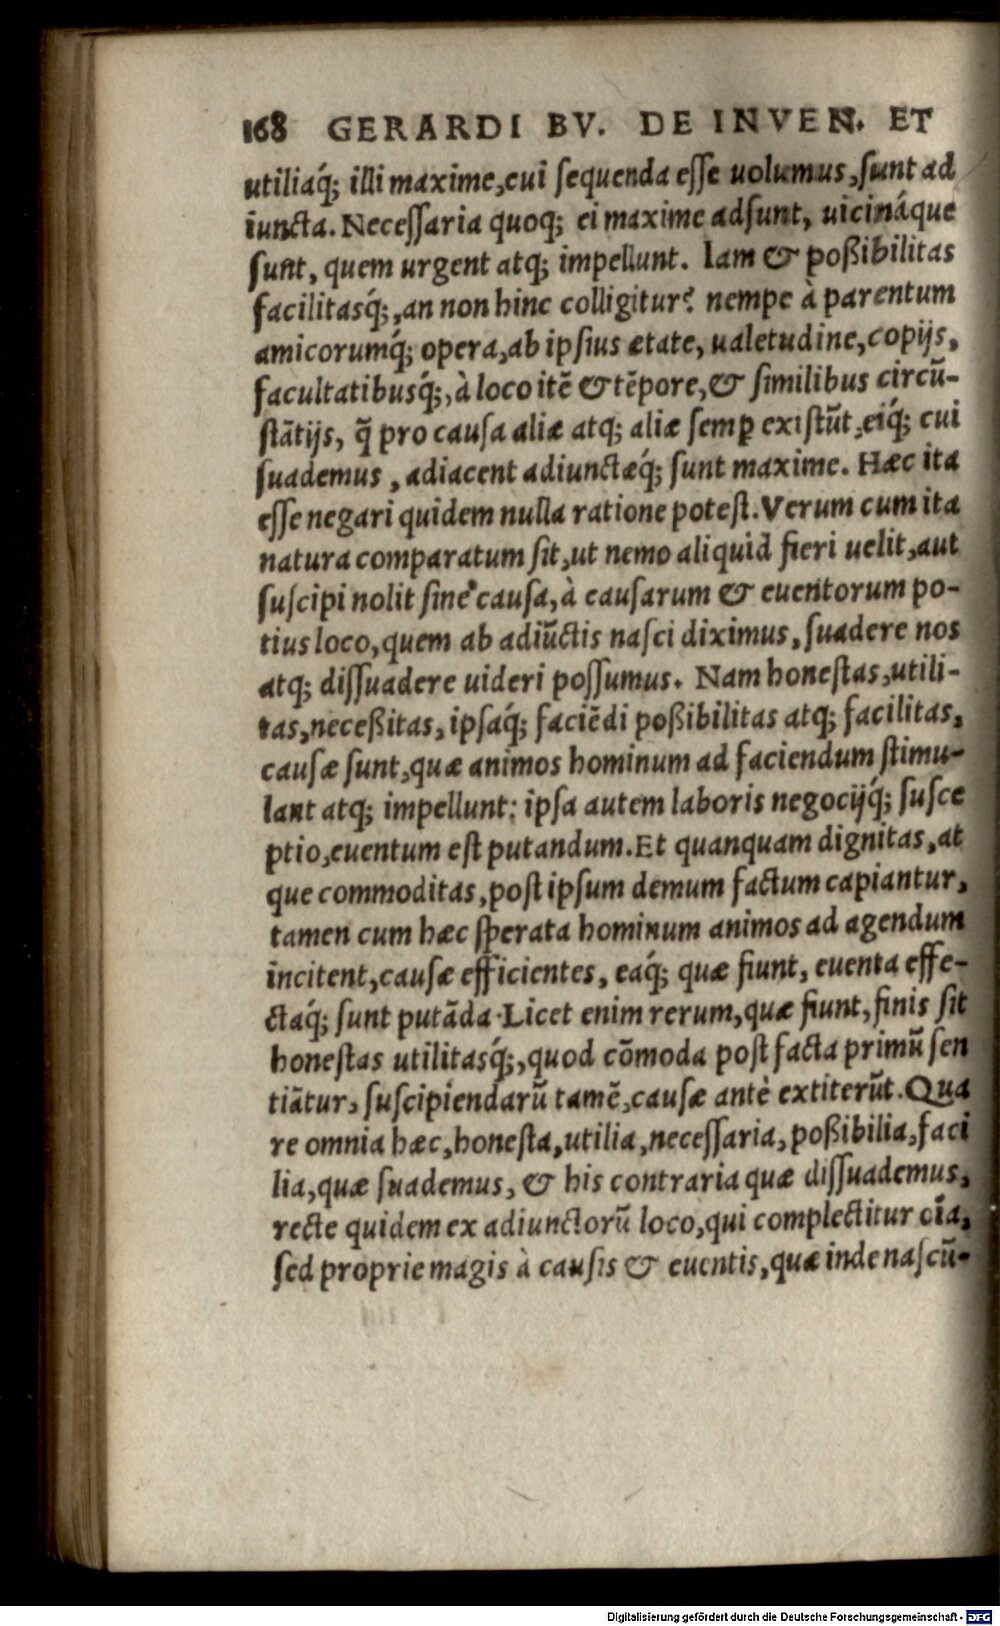 168 GERARDI BV. DE INVEN. ET
utiliaq́; illi maxime, cui ſequenda eſſe uolumus, ſunt ad
iuncta. Neceſſaria quoq; ei maxime adſunt, uicináque
ſunt, quem urgent atq; impellunt. Iam & poßibilitas
facilitasq́;, an non hinc colligitur? nempe à parentum
amicorumq́; opera, ab ipſius ætate, ualetudine, copijs,
facultatibusq́;, à loco itē & tēpore, & ſimilibus circū-
ſtātijs, q̄ pro cauſa aliæ atq; aliæ ſemꝑ exiſtūt, eiq́; cui
ſuademus, adiacent adiunctæq́; ſunt maxime. Hæc ita
eſſe negari quidem nulla ratione poteſt. Verum cum ita
natura comparatum ſit, ut nemo aliquid fieri uelit, aut
ſuſcipi nolit ſine cauſa, à cauſarum & euentorum po-
tius loco, quem ab adiūctis naſci diximus, ſuadere nos
atq; diſſuadere uideri poſſumus. Nam honeſtas, utili-
tas, neceßitas, ipſaq́; faciēdi poßibilitas atq; facilitas,
cauſæ ſunt, quæ animos hominum ad faciendum ſtimu-
lant atq; impellunt: ipſa autem laboris negocijq́; ſuſce
ptio, euentum eſt putandum. Et quanquam dignitas, at
que commoditas, poſt ipſum demum factum capiantur,
tamen cum hæc ſperata hominum animos ad agendum
incitent, cauſæ efficientes, eaq́; quæ fiunt, euenta effe-
ctaq́; ſunt putāda. Licet enim rerum, quæ fiunt, finis ſit
honeſtas utilitasq́;, quod cōmoda poſt facta primū ſen
tiātur, ſuſcipiendarū tamē, cauſæ antè extiterūt. Qua
re omnia hæc, honeſta, utilia, neceſſaria, poßibilia, faci
lia, quæ ſuademus, & his contraria quæ diſſuademus,
recte quidem ex adiunctorū loco, qui complectitur oīa,
ſed proprie magis à cauſis & euentis, quæ inde naſcū-
Digitalisierung gefördert durch die Deutsche Forschungsgemeinschaft - DFG